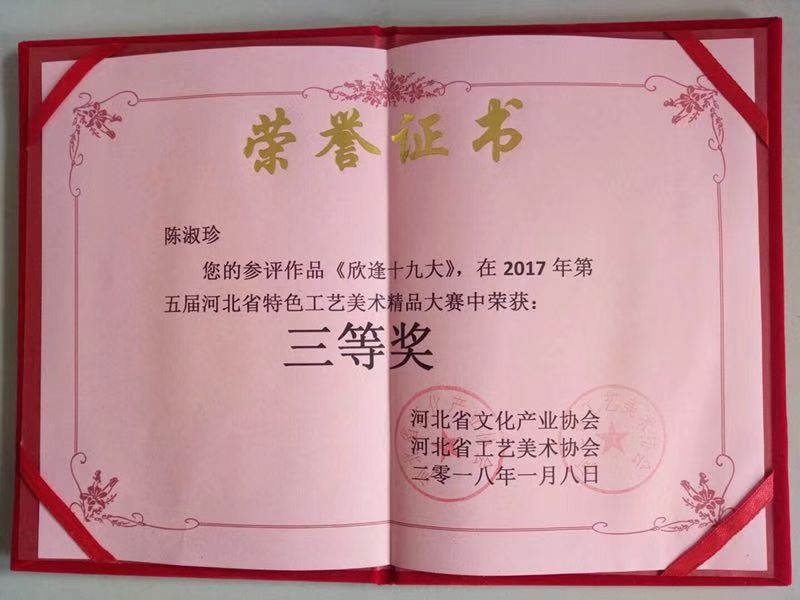 荣誉证书
陈淑珍
您的参评作品《欣逢十九大》，在 2017 年第
五届河北省特色工艺美术精品大赛中荣获：
三等奖
河北省文化产业协会
河北省工艺美术协会
二零一八年一月八日